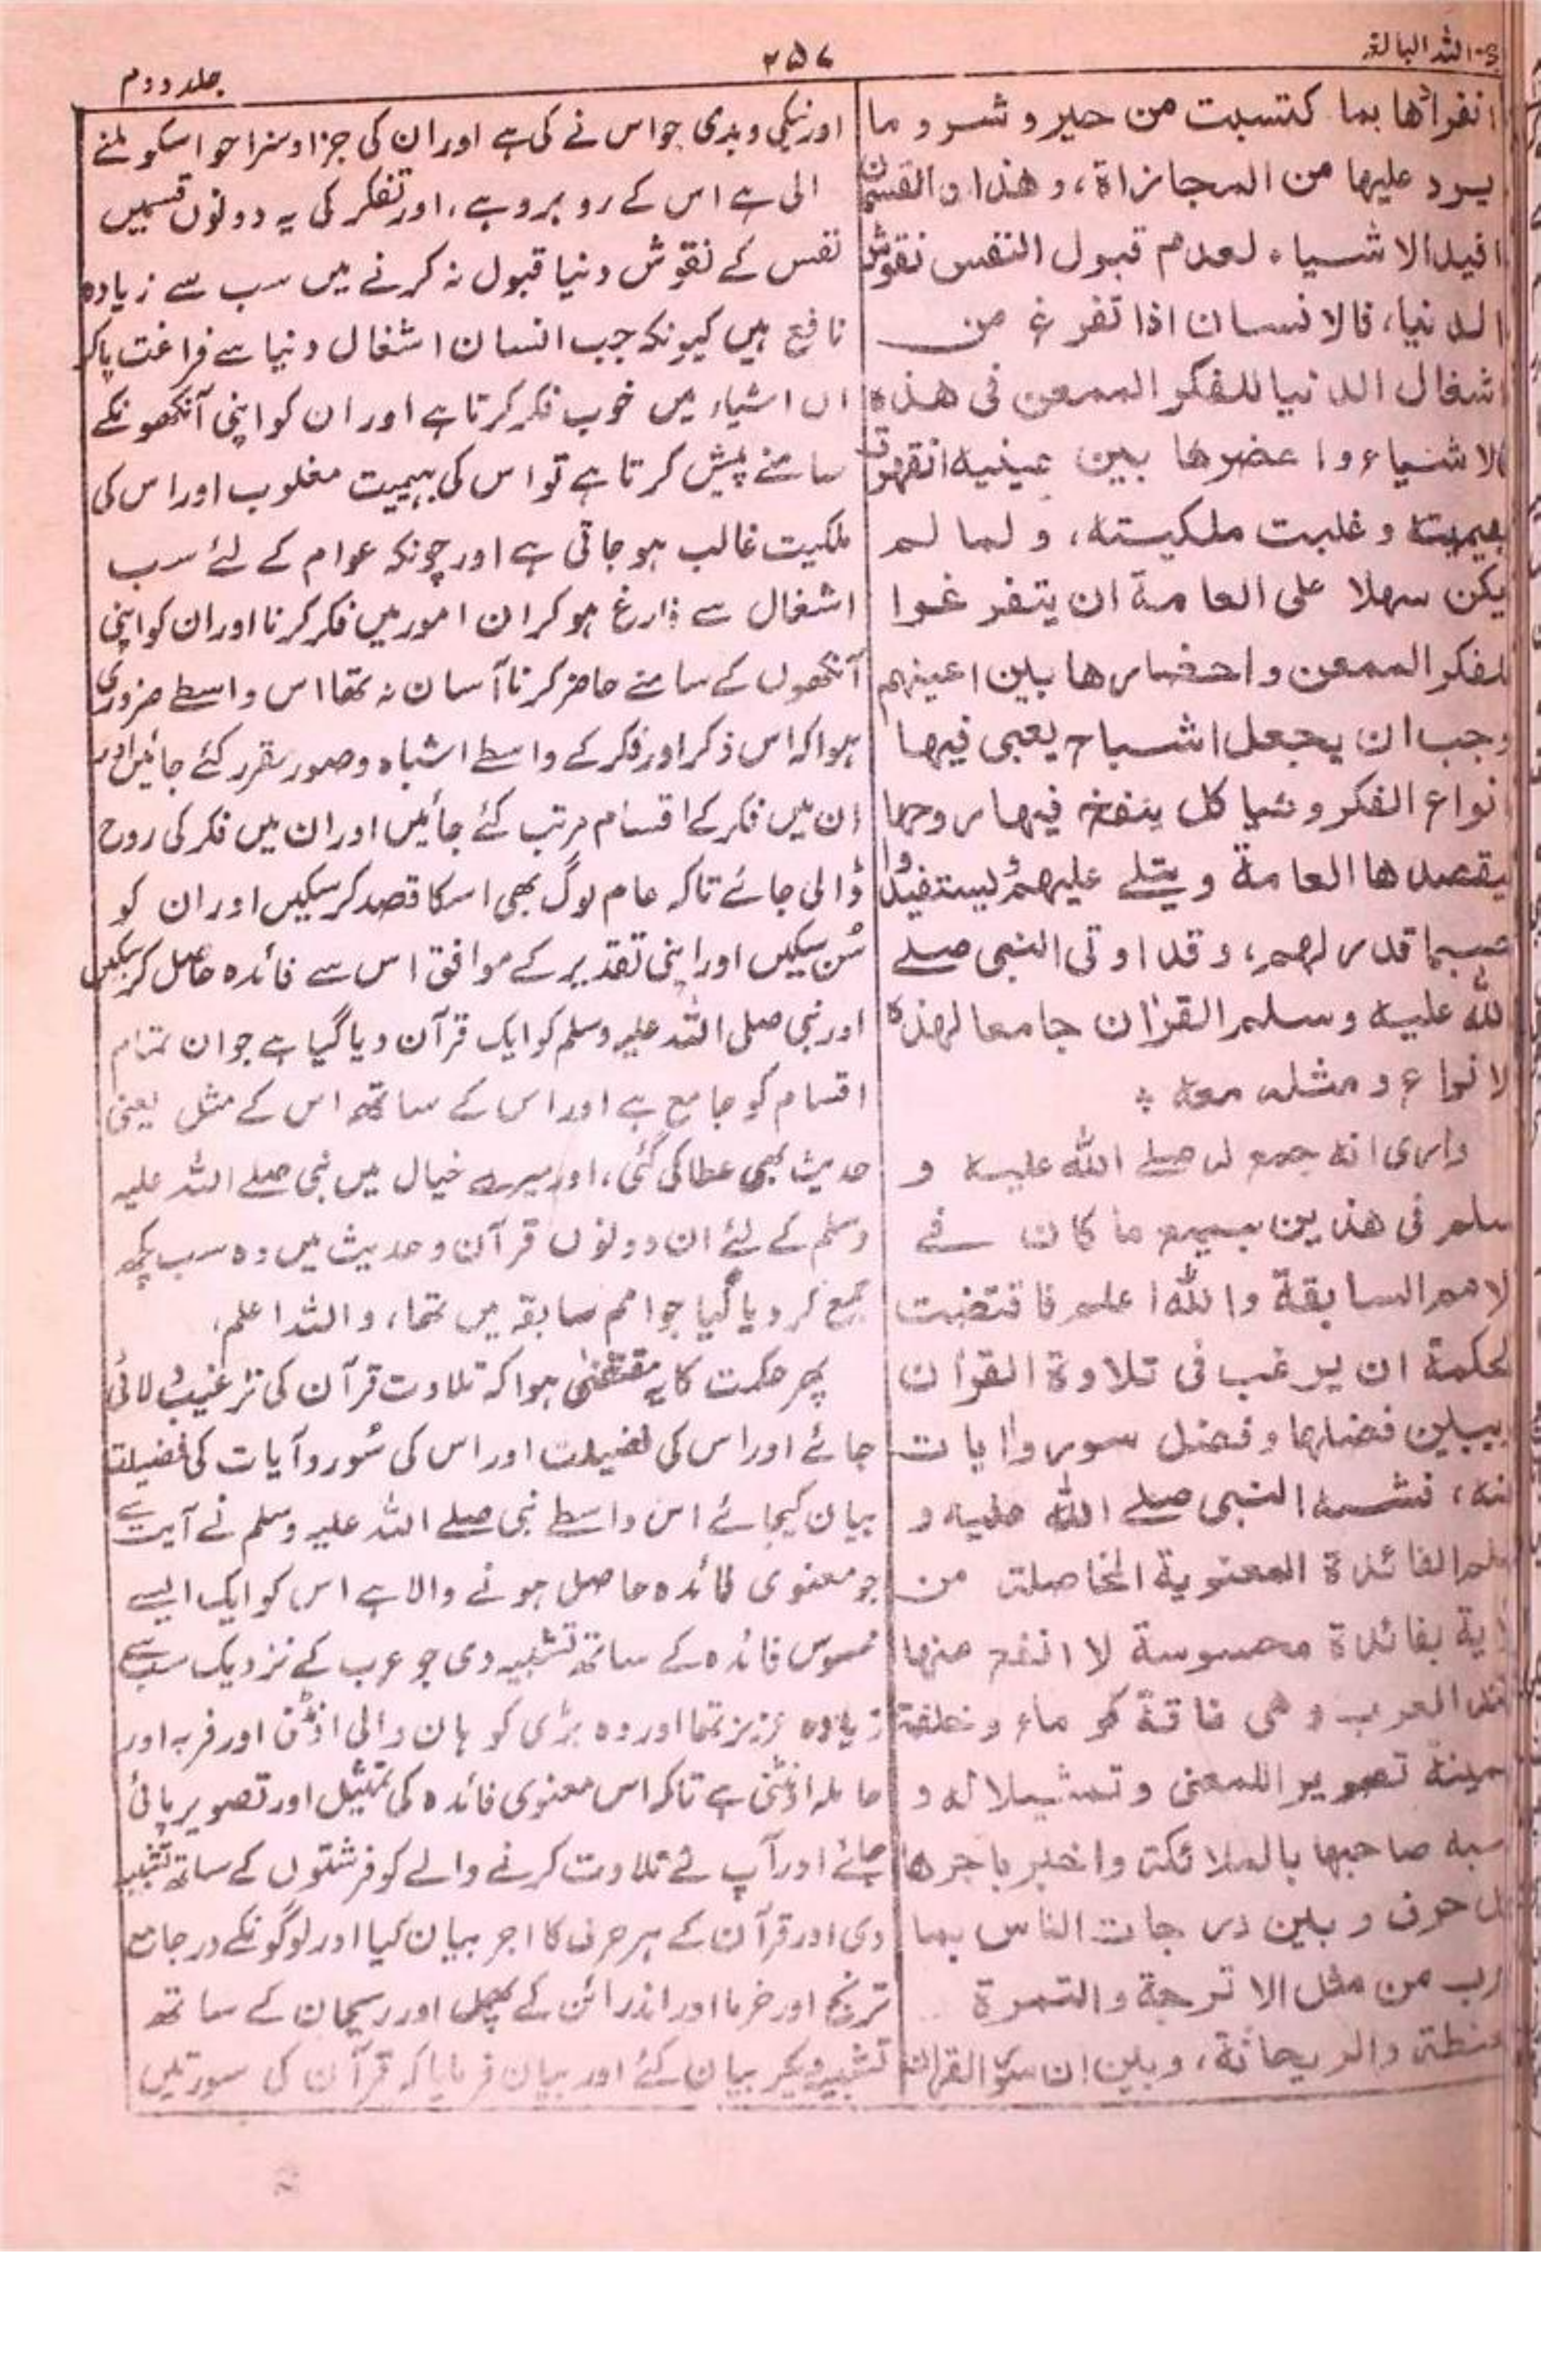 اللہ البالغہ
۲۵۷
جلد دوم
انفرادها بما كتسبت من خير وشر وما
يرد عليها من المجازاة، وهذان القسمان
افيد الاشياء لعدم قبول النفس نقوش
الدنيا، فالانسان اذا تفرغ من
اشغال الدنيا للفكر الممعن فى هذه
الاشياء واحضرها بين عينيه انقهرت
بهيميته وغلبت ملكيته، ولما لم
يكن سهلا على العامة ان يتفرغوا
للفكر الممعن واحضارها بين اعينهم
وجب ان يجعل اشباح يعبى فيها
انواع الفكر وهياكل ينفخ فيها روحها
ليقصدها العامة ويتلے عليهم ليستفيدوا
حسبما قدر لهم، وقد اوتى النبى صلے
الله عليه وسلم القرٰان جامعا لهذه
لانواع ومثله معه ؛
وارى انه جمع له صلے الله عليه و
سلم فى هذين جميع ما كان فے
لامم السابقة والله اعلم فاقتضت
لحكمة ان يرغب فى تلاوة القرٰان
يبين فضلها وفضل سور واٰيات
منه، فشبه النبى صلے الله عليه و
سلم الفائدة المعنوية الحاصلة من
اٰية بفائدة محسوسة لا انفع منها
عند العرب وهى ناقة كوماء وخلفة
سمينة تصويرا للمعنى وتمثيلا له و
شبه صاحبها بالملائكة واخبر باجرها
كل حرف وبين درجات الناس بما
ضرب من مثل الاترجة والتمرة
حنظلة والريحانة، وبين ان سور القراٰن
اور نیکی و بدی جو اس نے کی ہے اور ان کی جزا و سزا جو اسکو ملنے
الی ہے اس کے رو برو ہے، اور تفکر کی یہ دونوں قسمیں
نفس کے نقوش دنیا قبول نہ کرنے میں سب سے زیادہ
نافع ہیں کیونکہ جب انسان اشغال دنیا سے فراغت پاکر
ان اشیاء میں خوب فکر کرتا ہے اور ان کو اپنی آنکھونکے
سامنے پیش کرتا ہے تو اس کی بہیمیت مغلوب اور اس کی
ملکیت غالب ہو جاتی ہے اور چونکہ عوام کے لئے سب
اشغال سے فارغ ہو کر ان امور میں فکر کرنا اور ان کو اپنی
آنکھوں کے سامنے حاضر کرنا آسان نہ تھا اس واسطے ضروری
ہوا کہ اس ذکر اور فکر کے واسطے اشباہ و صور مقرر کئے جائیں اور
ان میں فکر کے اقسام مرتب کئے جائیں اور ان میں فکر کی روح
ڈالی جائے تاکہ عام لوگ بھی اسکا قصد کر سکیں اور ان کو
سُن سکیں اور اپنی تقدیر کے موافق اس سے فائدہ حاصل کر سکیں
اور نبی صلی اللہ علیہ وسلم کو ایک قرآن دیا گیا ہے جو ان تمام
اقسام کو جامع ہے اور اس کے ساتھ اس کے مثل یعنی
حدیث بھی عطا کی گئی، اور میرے خیال میں نبی صلے اللہ علیہ
وسلم کے لئے ان دونوں قرآن و حدیث میں وہ سب کچھ
جمع کر دیا گیا جو امم سابقہ میں تھا، واللہ اعلم،
پھر حکمت کا یہ مقتضیٰ ہوا کہ تلاوت قرآن کی ترغیب دلائی
جائے اور اس کی فضیلت اور اس کی سُور و آیات کی فضیلت
بیان کیجائے اس واسطے نبی صلے اللہ علیہ وسلم نے آیت سے
جو معنوی فائدہ حاصل ہونے والا ہے اس کو ایک ایسے
محسوس فائدہ کے ساتھ تشبیہ دی جو عرب کے نزدیک سب سے
زیادہ عزیز تھا اور وہ بڑی کوہان والی اونٹنی اور فربہ اور
حاملہ اونٹنی ہے تاکہ اس معنوی فائدہ کی تمثیل اور تصویر پائی
جائے اور آپ نے تلاوت کرنے والے کو فرشتوں کے ساتھ تشبیہ
دی اور قرآن کے ہر حرف کا اجر بیان کیا اور لوگونکے درجات
ترنج اور خرما اور اندرائن کے پھل اور ریحان کے ساتھ
تشبیہ دیکر بیان کئے اور بیان فرمایا کہ قرآن کی سورتیں